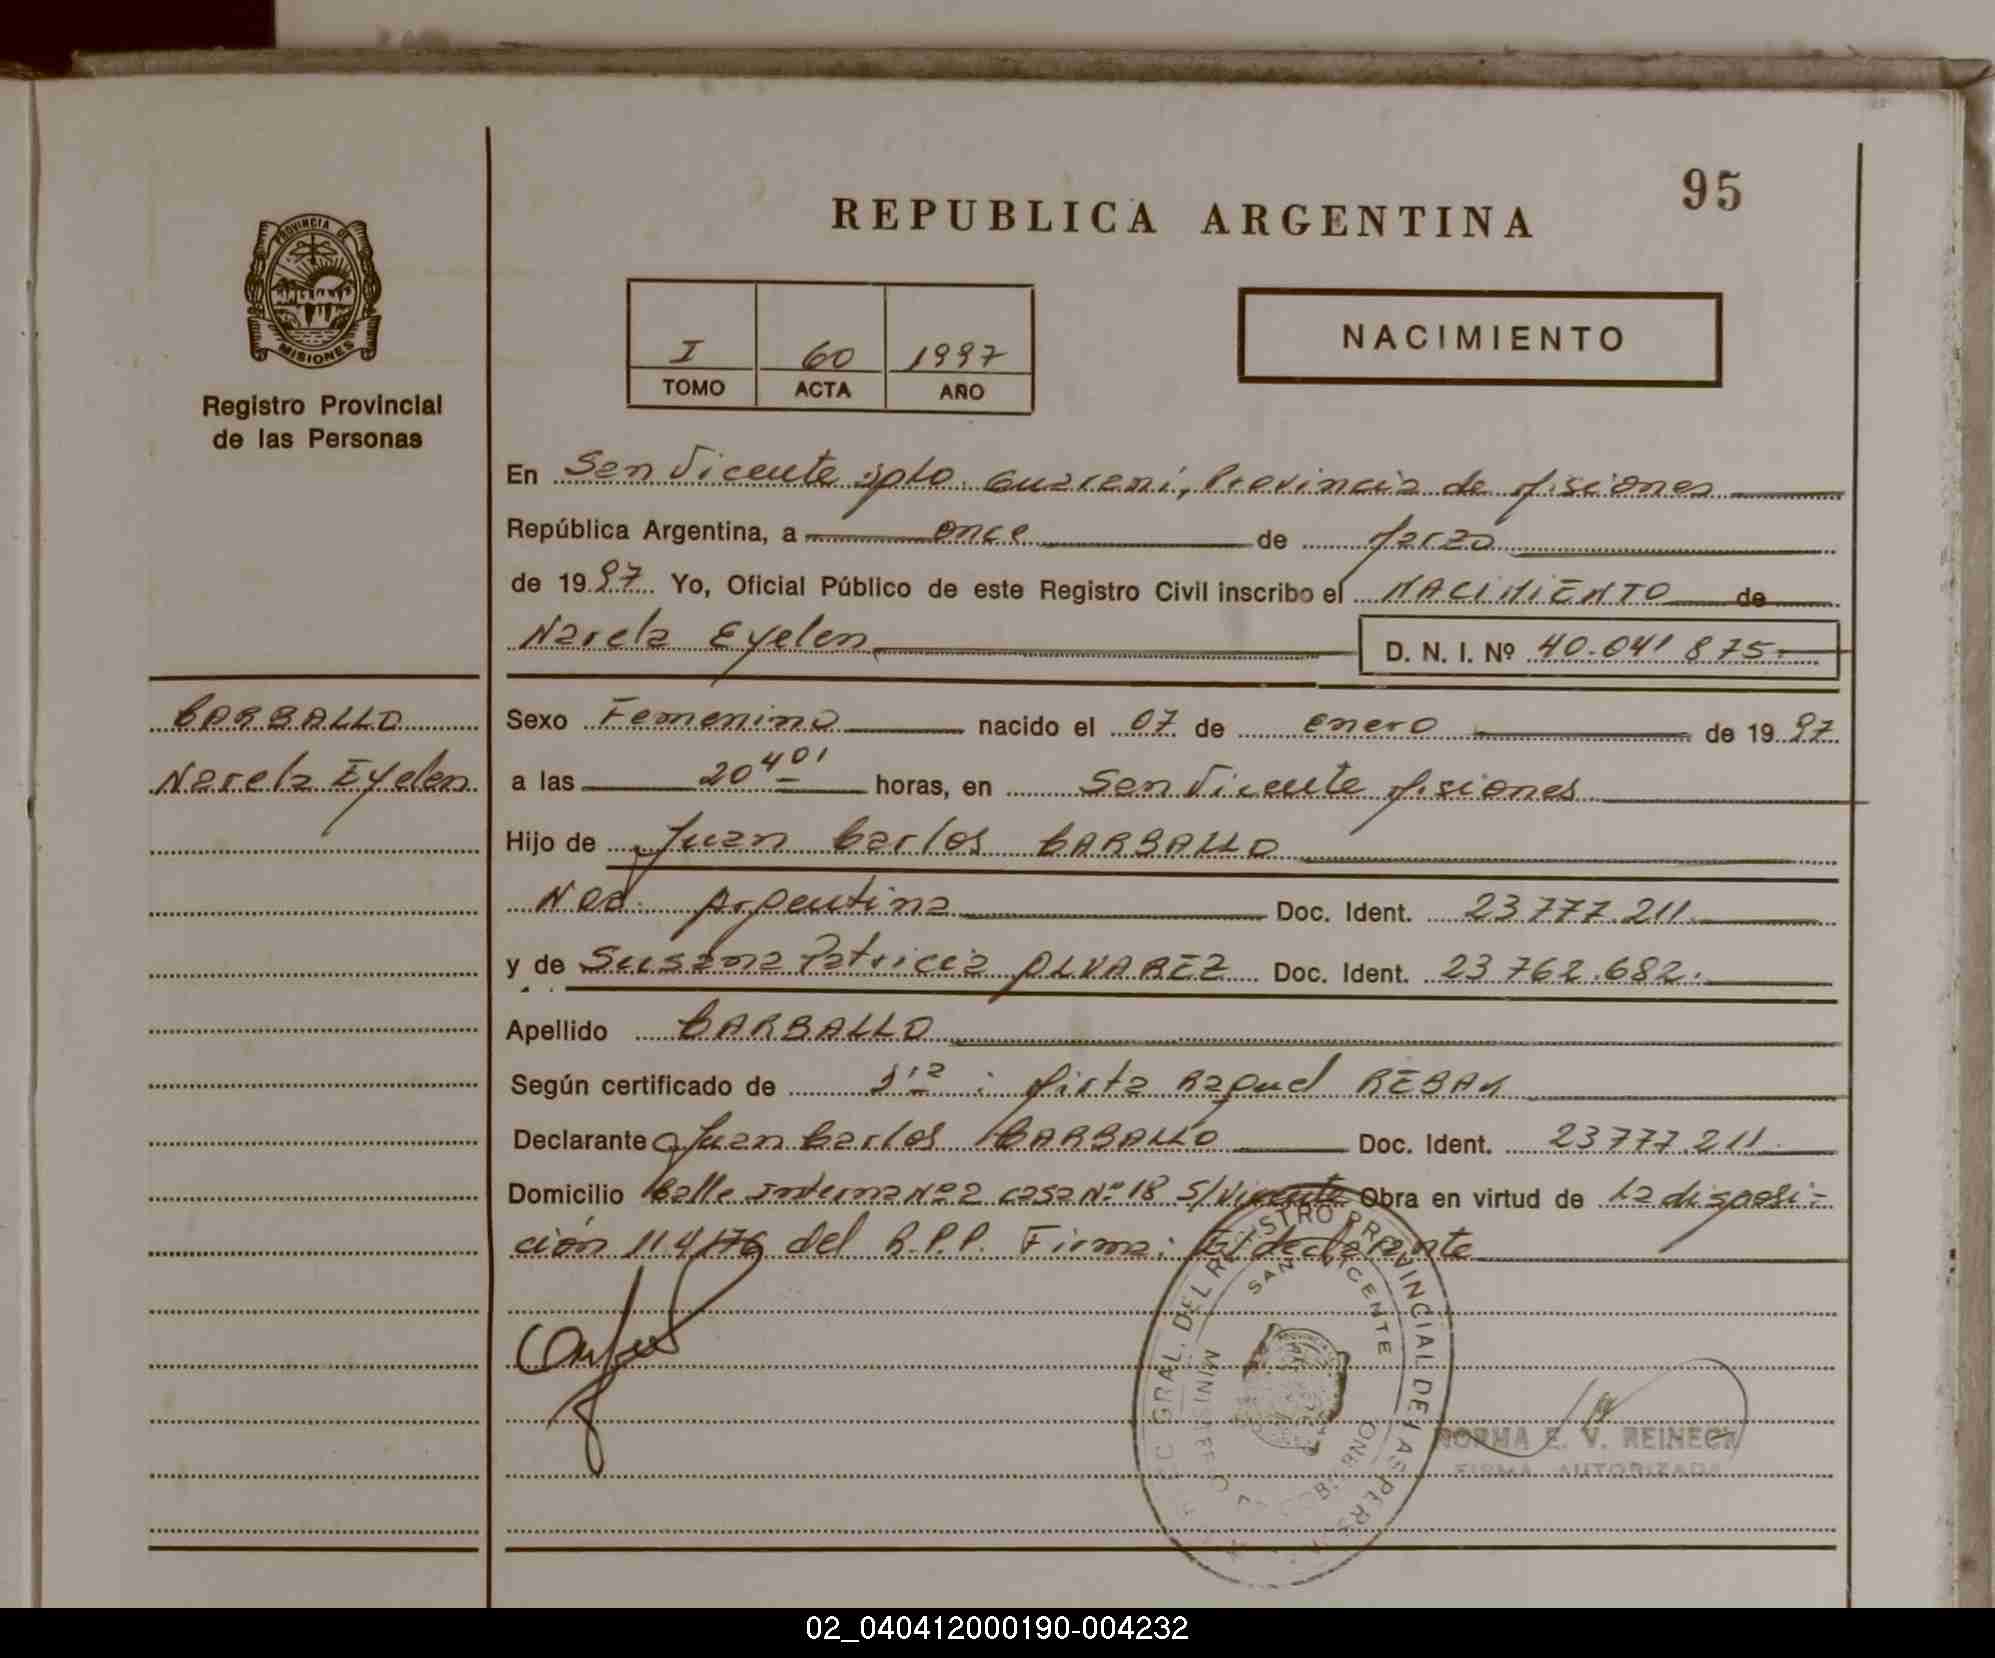 95
REPUBLICA ARGENTINA
PROVINCIA DE
MISIONES
Registro Provincial
de las Personas
I 60 1997
TOMO ACTA AÑO
NACIMIENTO
En San Vicente Dpto. Guaraní, Provincia de Misiones
República Argentina, a once de Marzo
de 1997 Yo, Oficial Público de este Registro Civil inscribo el NACIMIENTO de
Narela Eyelen D. N. I. Nº 40.041 875
CARBALLO
Narela Eyelen
Sexo Femenino nacido el 07 de enero de 1997
a las 20 40' horas, en San Vicente Misiones
Hijo de Juan Carlos CARBALLO
Nac. Argentina Doc. Ident. 23 777.211
y de Susana Patricia ALVAREZ Doc. Ident. 23 762.682.
Apellido CARBALLO
Según certificado de Mirta Raquel
Declarante Juan Carlos CARBALLO Doc. Ident. 23777.211
Domicilio Calle Interna Nº 2 casa Nº 18 S/Vicente Obra en virtud de la disposi=
ción 114/76 del R.P.P. Firma: El declarante
GRAL. DEL REGISTRO PROVINCIAL DE LAS PERS
SAN VICENTE
NORMA E. V. REINECK
FIRMA AUTORIZADA
02_040412000190-004232